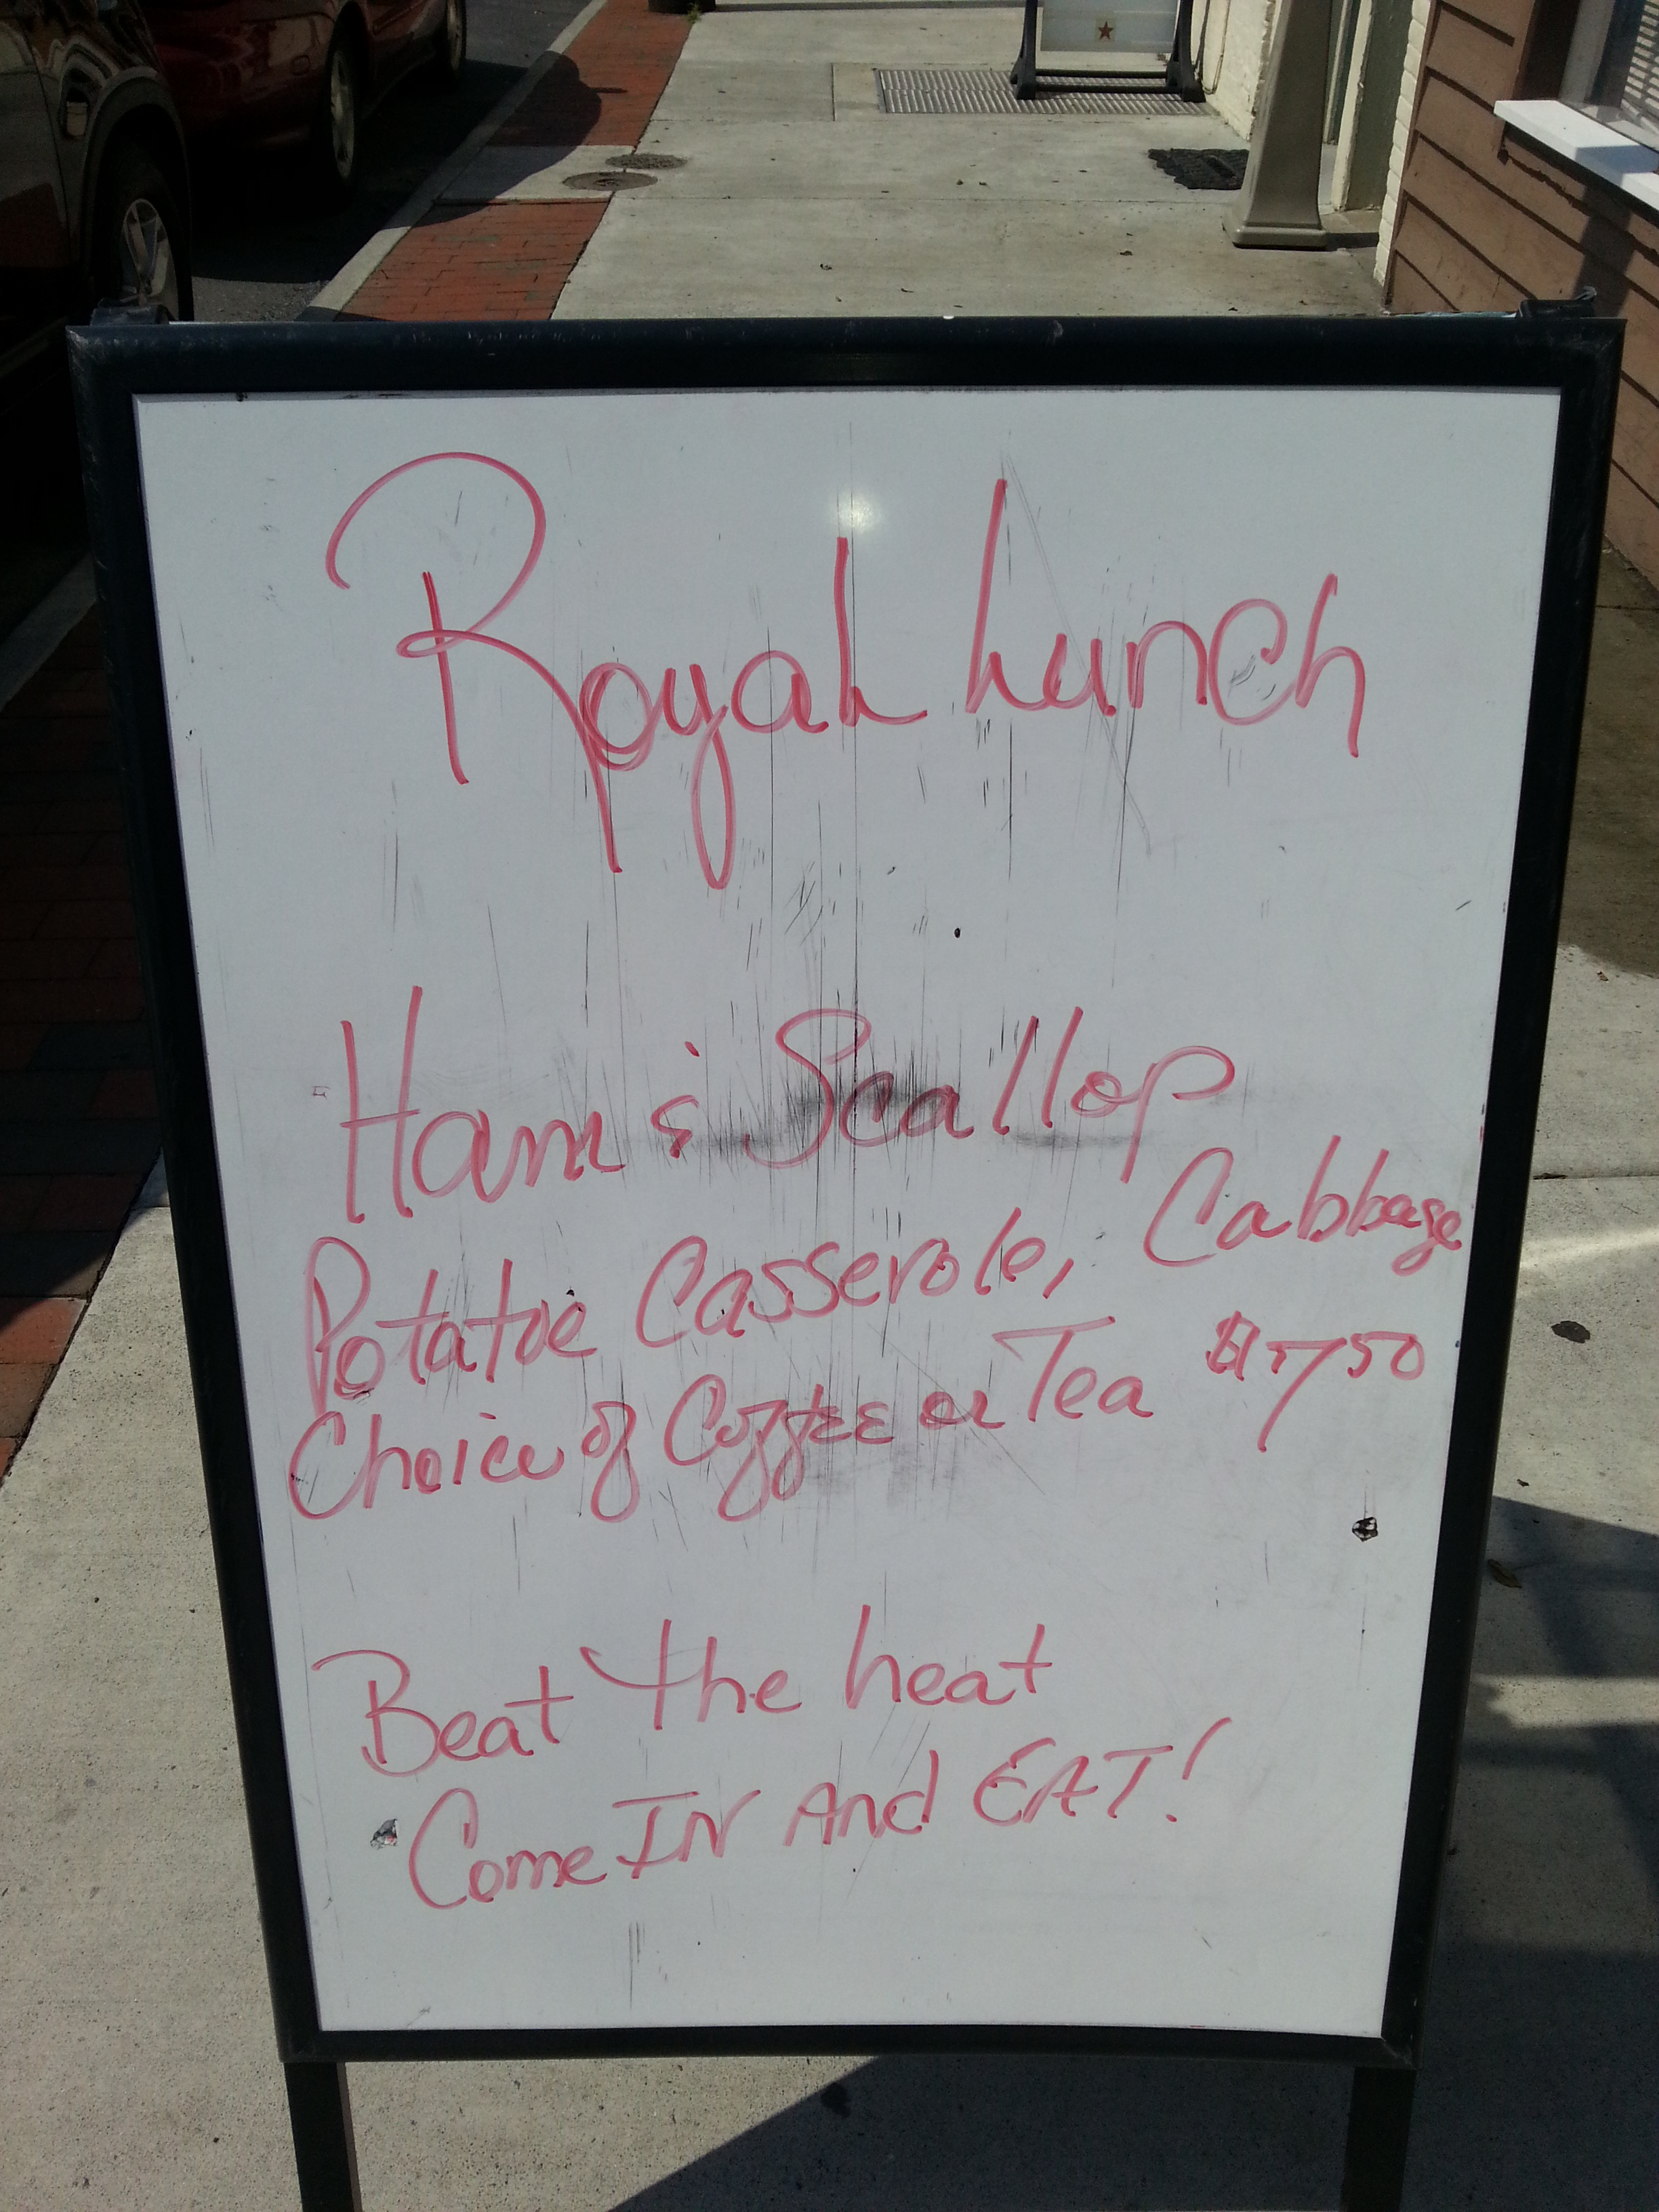 Royal Lunch
Ham & Scallop
Potatoe Casserole, Cabbage
Choice of Coffee or Tea $7.50
Beat the heat
Come IN And EAT!